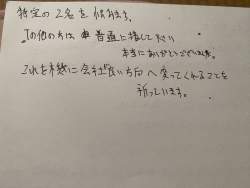 特定の2名を除きます。
その他の方は 普通に接して頂い
本当にありがとうございました。
これを機に会社が良い方向へ変ってくれることを
祈っています。